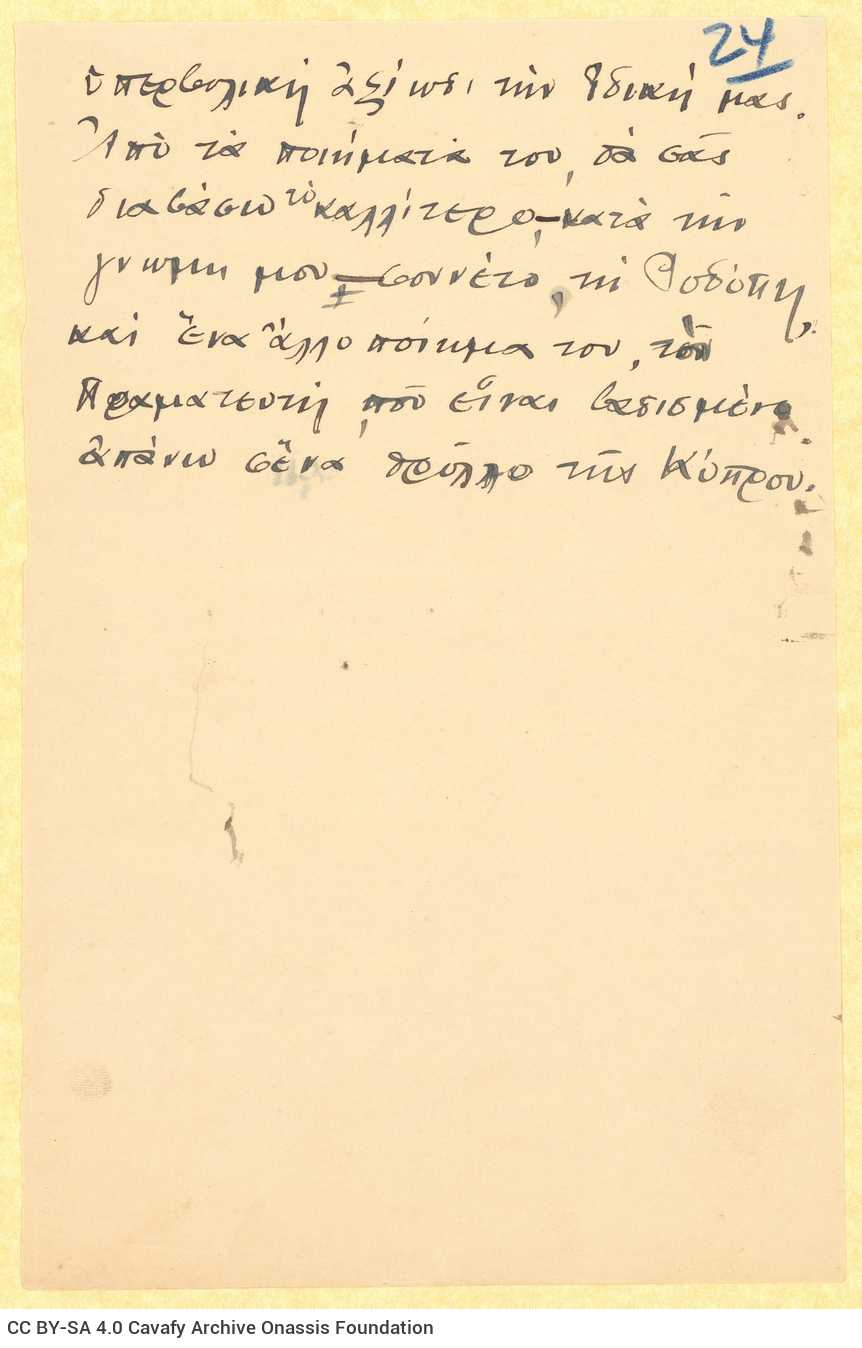 24
ὑπερβολικὴ ἀξίωσι τὴν ἰδική μας.
Ἀπὸ τὰ ποιήματά του, θὰ σᾶς
διαβάσω τὸ καλλίτερο, κατὰ τὴν
γνώμη μου, σοννέτο, τὴ Ροδόπη,
καὶ ἕνα ἄλλο ποίημα του, τὸν
Πραματευτὴ, ποῦ εἶναι βασισμένο
ἀπάνω σ' ἕνα θρύλλο τῆς Κύπρου.
CC BY-SA 4.0 Cavafy Archive Onassis Foundation